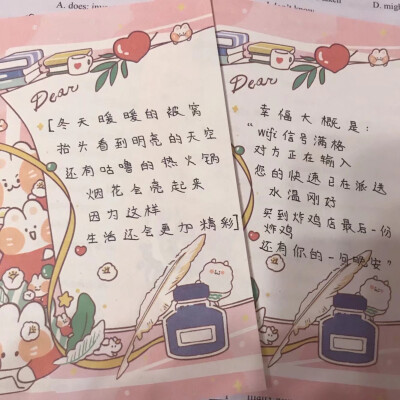 A. does: inv
Dear
[冬天暖暖的被窝
抬头看到明亮的天空
还有咕噜的热火锅
烟花会亮起来
因为这样
生活还会更加精彩]
D. migh
Dear
幸福大概是:
"wifi信号满格
对方正在输入
您的快递已在派送
水温刚好
买到炸鸡店最后一份
炸鸡
还有你的一句晚安"